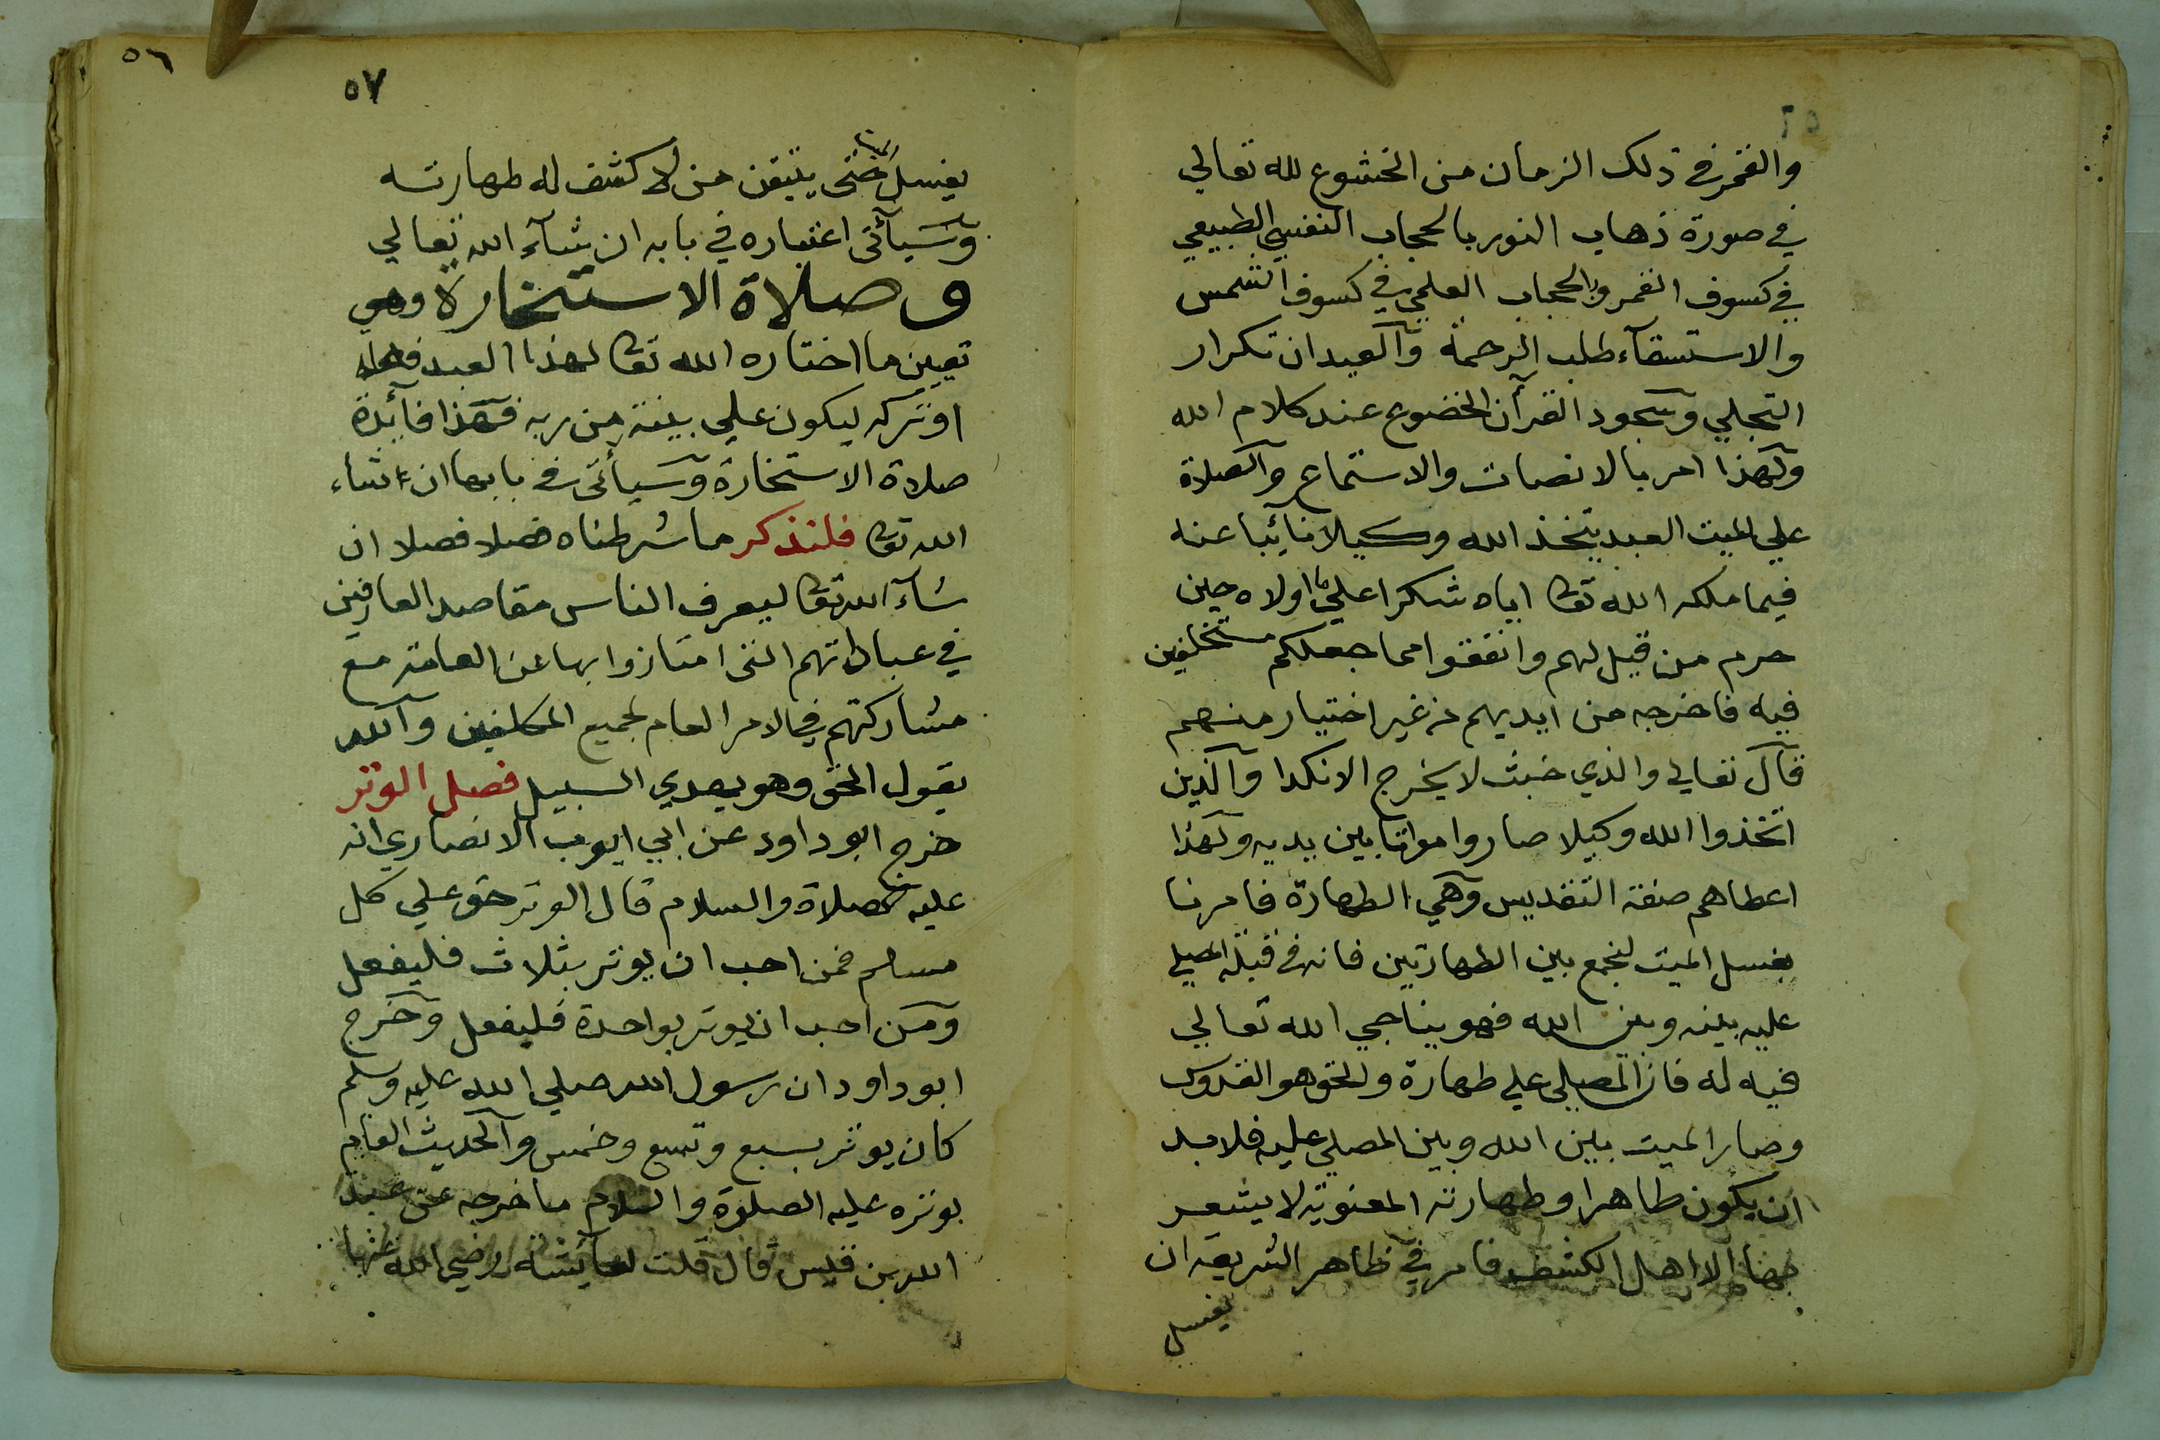 ٥٦
والقمر في ذلك الزمان من الخشوع لله تعالي
في صورة ذهاب النور بالحجاب النفسي الطبيعي
في كسوف القمر وبالحجاب العلمي في كسوف الشمس
والاستسقآء طلب الرحمة والعيدان تكرار
التجلي وسجود القرآن الخضوع عند كلام الله
ولهذا امر بالانصات والاستماع والصلاة
علي الميت العبد يتخذ الله وكيلا نائبا عنه
فيما ملكه الله تعا اياه شكرا علي ما اولاه حين
حرم من قيل لهم وانفقوا مما جعلكم مستخلفين
فيه فاخرجه من ايديهم من غير اختيار منهم
قال تعالي والذي خبث لا يخرج الا نكدا والذين
اتخذوا الله وكيلا صاروا مواتا بين يديه ولهذا
اعطاهم صفة التقديس وهي الطهارة فامرنا
بغسل الميت لنجمع بين الطهارتين فانه في قبلة المصلي
عليه بينه وبين الله فهو يناجي الله تعالي
فيه له فان المصلي علي طهارة والحق هو القدوس
وصار الميت بين الله وبين المصلي عليه فلا بد
ان يكون طاهرا وطهارته المعنوية لا يشعر
بها الا اهل الكشف فامر في ظاهر الشريعة ان
يغسل
٥٦
٥٧
يغسل حتى يتيقن من لا كشف له طهارته
وسيأتى اعتباره في بابه ان شآء الله تعالي
وصلاة الاستخارة وهي
تعيين ما اختاره الله تعا لهذا العبد فعله
او تركه ليكون علي بينة من ربه فهذا فآئدة
صلاة الاستخارة وسيأتى في بابها ان شاء
الله تعا فلنذكر ما شرطناه فصلا فصلا ان
شآء الله تعا ليعرف الناس مقاصد العارفين
في عباداتهم التى امتازوا بها عن العامة مع
مشاركتهم في الامر العام لجميع المكلفين والله
يقول الحق وهو يهدي السبيل فصل الوتر
خرج ابو داود عن ابي ايوب الانصاري انه
عليه الصلاة والسلام قال الوتر حق علي كل
مسلم فمن احب ان يوتر بثلاث فليفعل
ومن احب ان يوتر بواحدة فليفعل وخرج
ابو داود ان رسول الله صلي الله عليه وسلم
كان يوتر بسبع وتسع وخمس والحديث العام
بوتره عليه الصلوة والسلام ما خرجه عن عبد
الله بن قيس قال قلت لعآئشة رضي الله عنها